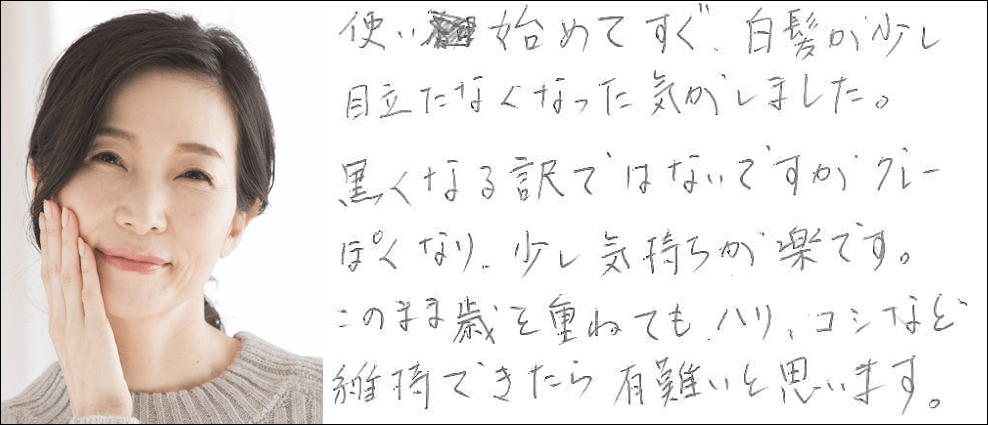 使い始めてすぐ、白髪が少し
目立たなくなった気がしました。
黒くなる訳ではないですがグレー
ぽくなり、少し気持ちが楽です。
このまま歳を重ねても、ハリ、コシなど
維持できたら有難いと思います。